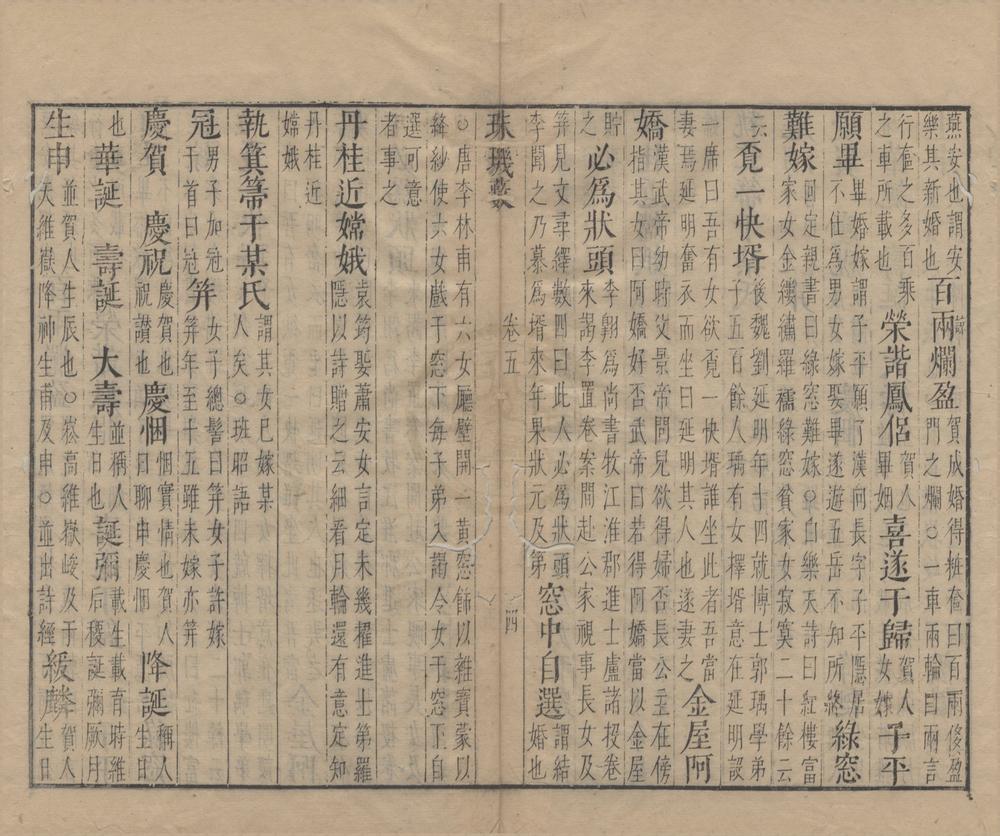 燕安也謂安
樂其新婚也
百兩爛盈
賀成婚得粧奩曰百兩侈盈
門之爛○一車兩輪曰兩言
行奩之多百乘
之車所載也
榮諧鳳侶
賀人
畢姻
喜遂于歸
賀人
女嫁
子平
願畢
畢婚嫁謂子平願了漢向長字子平隱居
不仕為男女嫁娶畢遂遊五岳不知所終
綠窓
難嫁
回定親書曰綠窓難嫁○白樂天詩曰紅樓富
家女金縷繡羅襦綠窓貧家女寂寞二十餘云
云
覔一快壻
後魏劉延明年十四就博士郭瑀學弟
子五百餘人瑀有女擇壻意在延明設
一席曰吾有女欲覔一快壻誰坐此者吾當
妻焉延明奮衣而坐曰延明其人也遂妻之
金屋阿
嬌
漢武帝幼時父景帝問兒欲得婦否長公主在傍
指其女曰阿嬌好否武帝曰若得阿嬌當以金屋
貯
之
必爲狀頭
李翱爲尚書牧江淮郡進士盧諸投卷
來謁李置卷案間赴公家視事長女及
筓見文尋繹數四曰此人必爲狀頭
李聞之乃慕爲壻來年果狀元及第
窓中自選
謂結
婚也
珠璣藪 卷五 四
○唐李林甫有六女廳壁開一黃窓飾以雜寳蒙以
絳紗使六女戲于窓下每子弟入謁令女于窓上自
選可意
者事之
丹桂近嫦娥
袁筠娶蕭安女言定未幾擢進士第羅
隱以詩贈之云細看月輪還有意定知
丹桂近
嫦娥
執箕箒于某氏
謂其女已嫁某
人矣○班昭語
冠
男子加冠
于首曰冠
筓
女子總髻曰筓女子許嫁
筓年至十五雖未嫁亦筓
慶賀 慶祝
慶賀也
祝讚也
慶悃
悃實情也賀人生
日聊申慶悃
降誕
稱人
生日
也
華誕 壽誕 大壽
並稱人
生日也
誕彌
載生載育時維
后稷誕彌厥月
生申
並賀人生辰也○崧高維嶽峻及于
天維嶽降神生甫及申○並出詩經
紱麟
賀人
生日